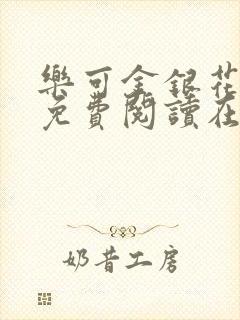 樂可金銀花
免費閱讀在
奶昔工房